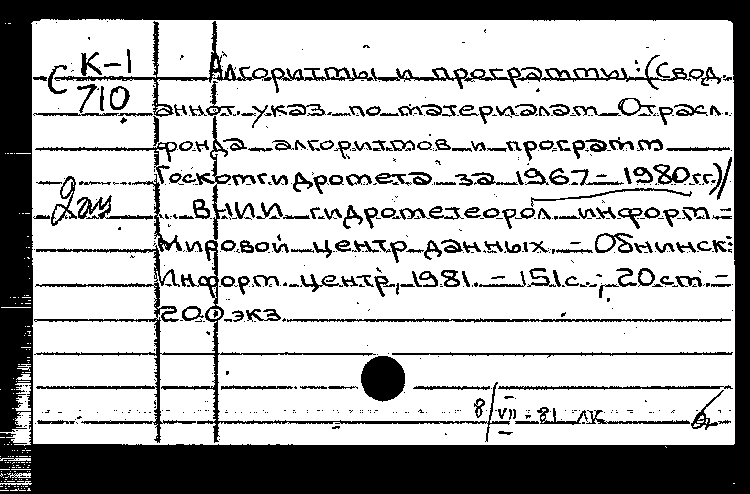 С К-1
710
Алгоритмы и программы: (Свод.
аннот. указ. по материалам Отрасл.
фонда алгоритмов и программ
Госкомгидромета за 1967-1980гг.)/
ВНИИ гидрометеорол. информ. -
Мировой центр данных. - Обнинск:
Информ. центр, 1981. - 151с.; 20см. -
200 экз.
8/VII-81 ЛК